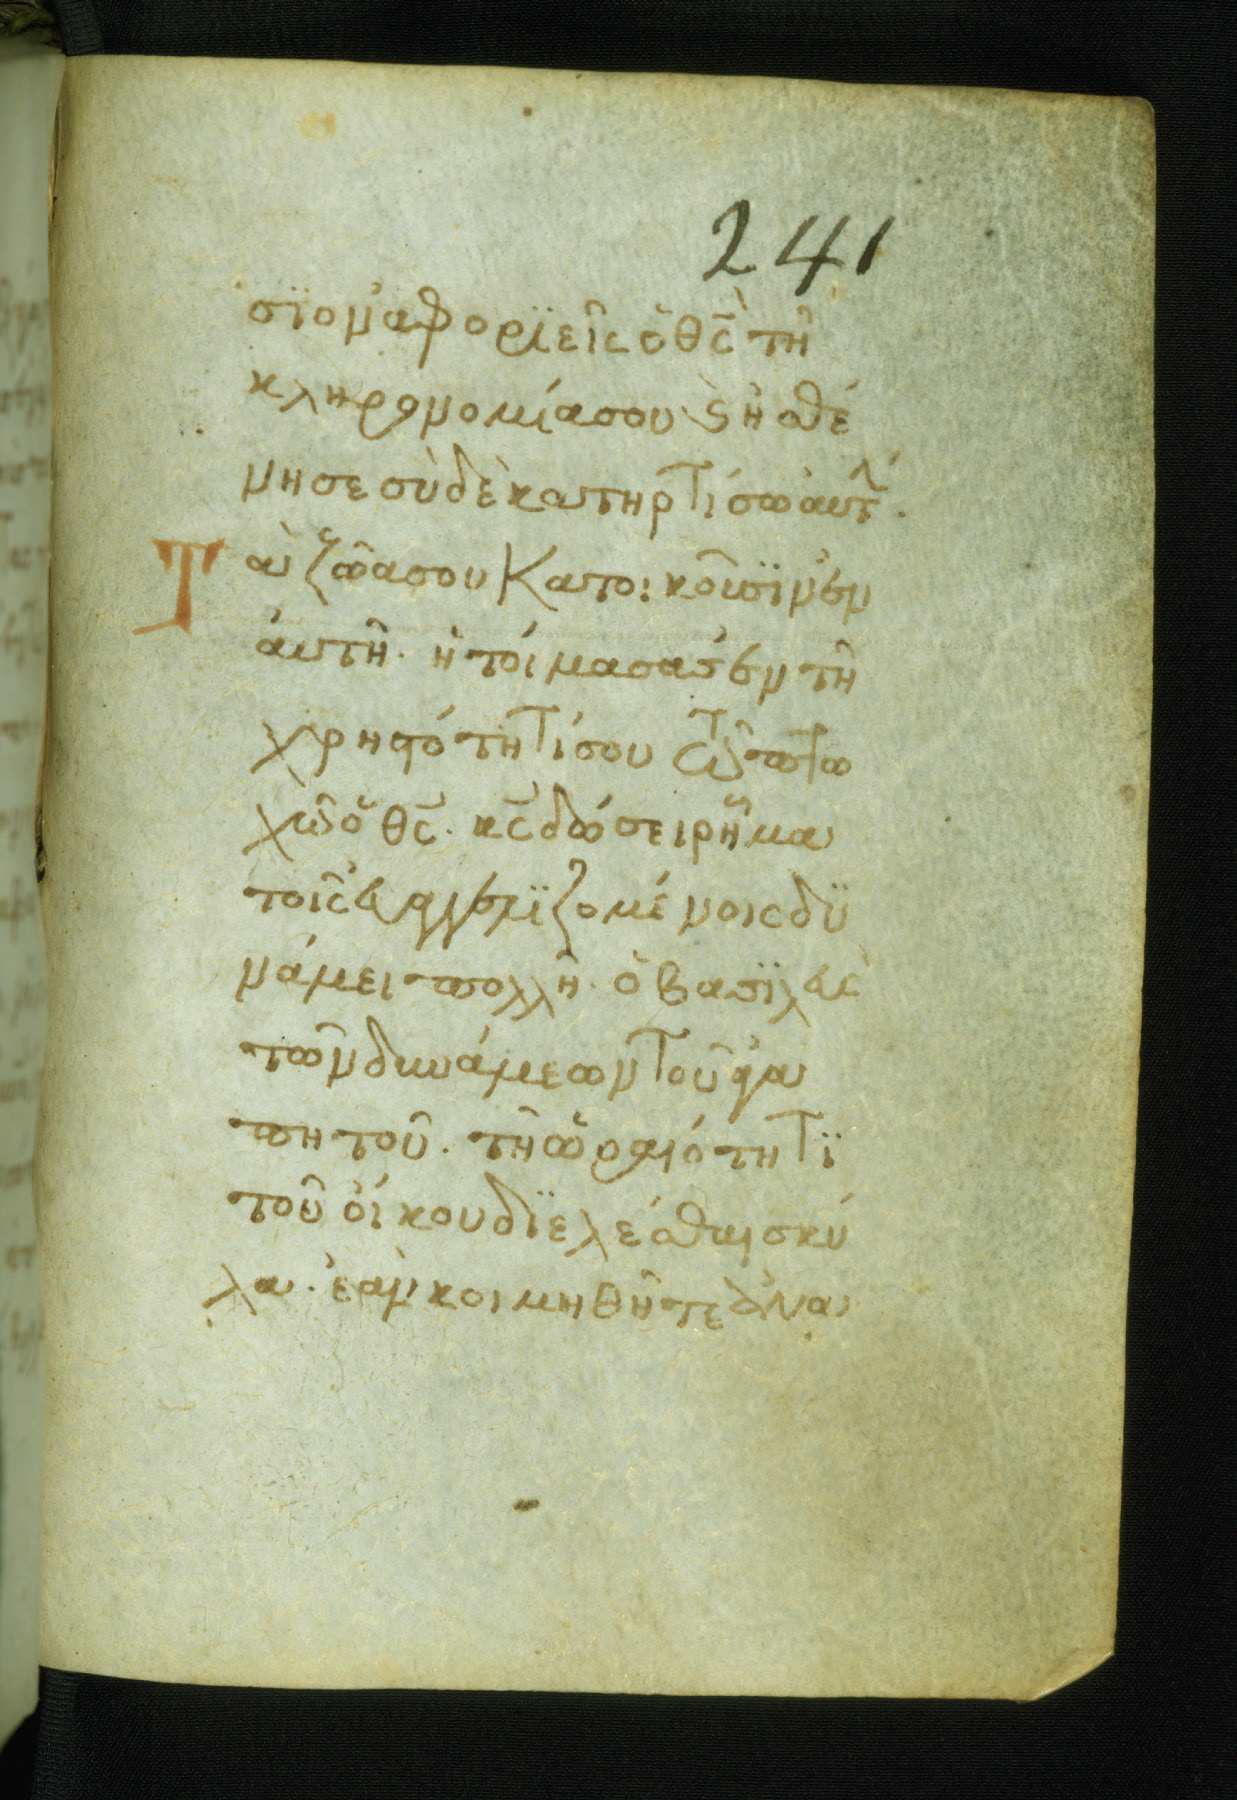 241
σϊον ἀφορϊεῖς ὁ θς̄ τῆ
κληρονομίασου ϗ ἠσθέ
νησε σὺ δὲ κατηρτίσω ἀυτ.
Τὰ ζῶασου κατοικοῦσϊν ἐν
ἀυτῆ. ἡτοίμασας ἐν τῆ
χρηστότητίσου τῶ πτω
χῶ ὁ θς̄. κς̄ δώσει ρῆμα
τοῖς ἐυαγγελϊζομένοις δϋ
νάμει πολλῆ. ὁ βασϊλεὺς
τῶν δυνάμεων τοῦ ἀγα
πητοῦ. τῆ ὡραιότητϊ
τοῦ οἴκου δϊελέσθαι σκύ
λα. ἐὰν κοιμηθῆτε ἀνα